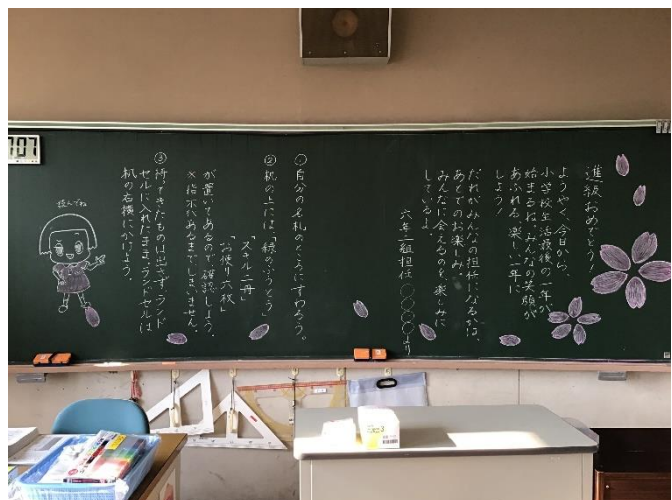 進級おめでとう!
ようやく、今日から、
小学校生活最後の一年が
始まるね。みんなの笑顔が
あふれる、楽しい一年に
しよう!
だれがみんなの担任になるかは、
あとでのお楽しみ。
みんなに会えるのを、楽しみに
しているよ。
六年二組担任 〇〇〇〇より
①自分の名札のところにすわろう。
②机の上には、「緑のふうとう」
「スキル二冊」
「お便り六枚」
が置いてあるので、確認しよう。
※指示があるまでしまいません。
③持ってきたものは出さず、ランド
セルに入れたまま、ランドセルは
机の右横にかけよう。
読んでね